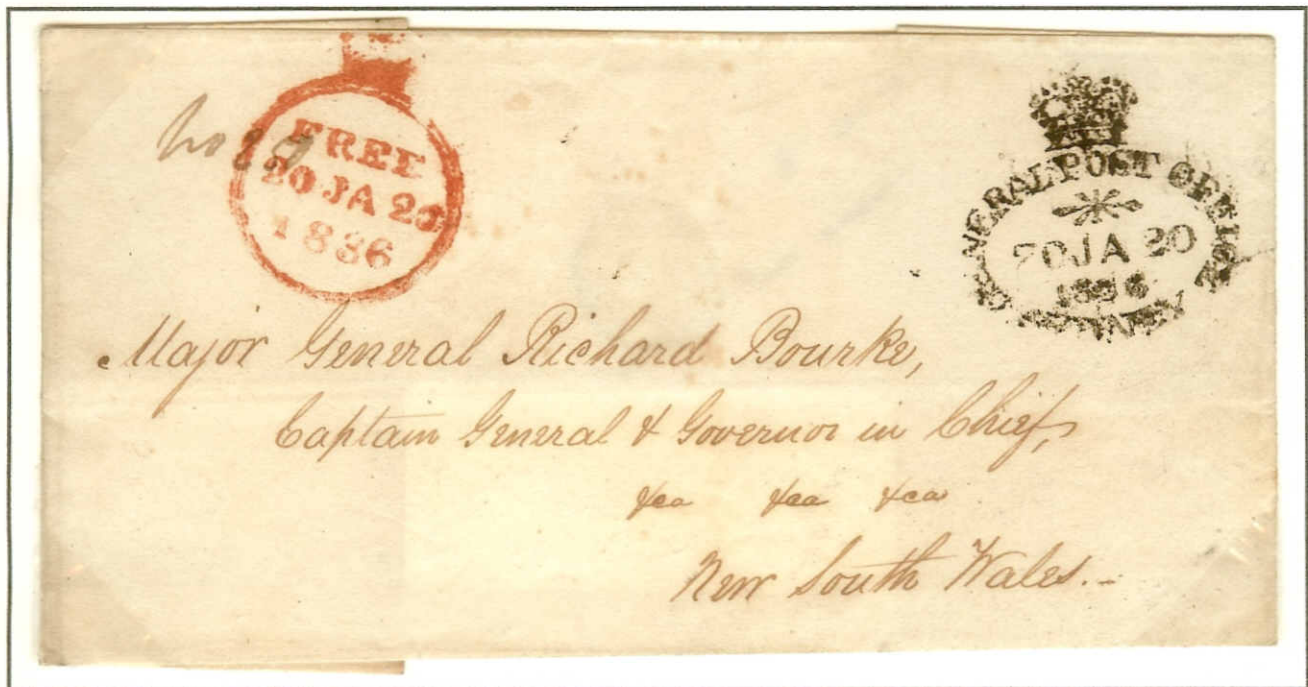 FREE
20 JA 20
1836
GENERAL POST OFFICE
20 JA 20
1836
SYDNEY
Major General Richard Bourke,
Captain General & Governor in Chief,
&ca &ca &ca
New South Wales.-